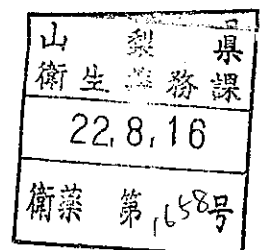 山梨県
衛生 務課
22.8.16
衛薬 第1658号